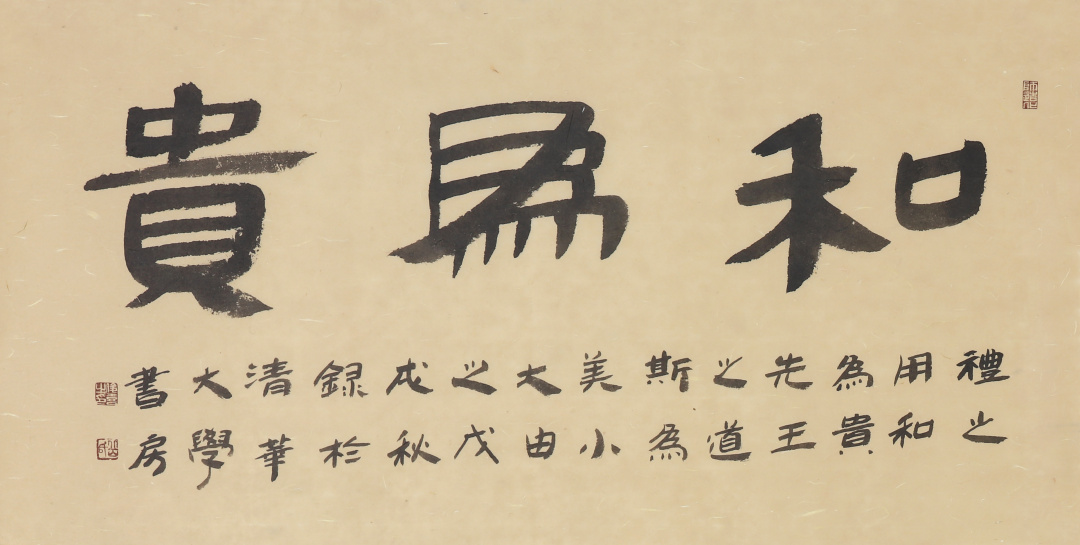 和為貴
禮之
用和
為貴
先王
之道
斯為
美小
大由
之戊
戌秋
録於
清華
大學
書房